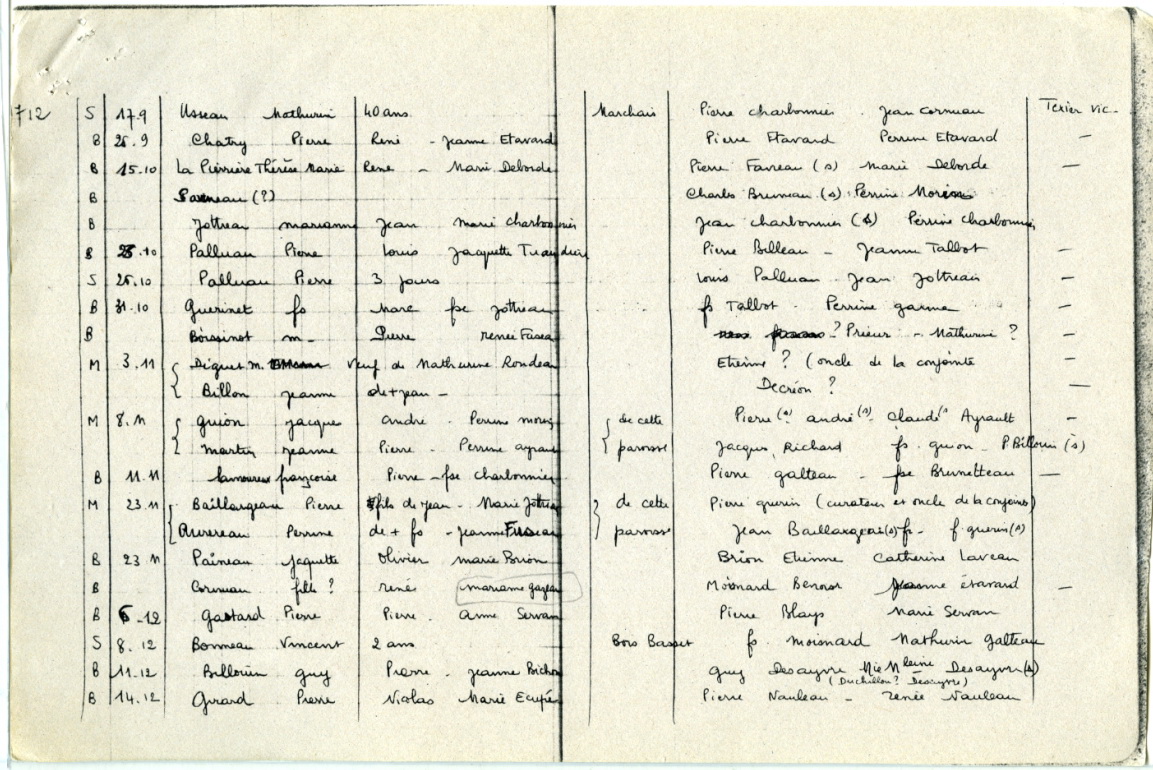 1712 S 17.9 Usseau Mathurin 40 ans Marchais Pierre charbonnier Jean Cormeau Texier Vic.
B 25.9 Chatry Pierre René - Jeanne Etavard Pierre Etavard Perrine Etavard —
B 15.10 La Pierrière Thérèse Marie René - Marie Deborde Pierre Favreau (s) Marie Deborde —
B (?) Charles Bruneau (s) Perrine
B Jottreau marianne Jean Marie charbonnier Jean charbonnier (s) Perrine charbonnier
B .10 Palluau Pierre Louis Jacquette Pierre Billeau - Jeanne Talbot —
S 25.10 Palluau Pierre 3 jours Louis Palluau Jean Jottreau —
B 31.10 Guerinet fs Marc fse Jottreau fs Talbot - Perrine garnie —
B Boissinot m- Pierre renée ? Prieur - Mathurine ? —
M 3.11 { Diguet m. Veuf de Mathurine Rondeau Etienne ? (oncle de la conjointe
Billon jeanne de + jean - Decrion ? —
M 8.11 { guion jacque andré - Perrine { de cette Pierre (s) andré (s) Claude (s) Ayrault —
martin jeanne Pierre - Perrine ayrault paroisse Jacques Richard fs. guion - P Billouin (s)
B 11.11 lamoureux françoise Pierre - fse charbonnier Pierre galteau - fse Brunetteau —
M 23.11 { Baillargeau Pierre fils de jean - Marie Jottreau } de cette Pierre guerin (curateur et oncle de la conjointe)
Perrine de + fs - jeanne paroisse Jean Baillargeau (s) fs - f. guerin (s)
B 23 11 Paineau jaquette Olivier marie Brion Brion Etienne Catherine Laveau
B Cormeau fille ? rené marianne Moisnard Benoist Jeanne étavard —
B 6-12 Gastard Pierre Pierre - Anne Servan Pierre Blays Marie Servan
S 8.12 Bonneau Vincent 2 ans Bois Basset fs. moisnard Mathurin galteau
B 11.12 Billouin guy Pierre - jeanne Bichon guy Desayvre Mie Mleine Desayvre (s)
(Duchillon? Desayvre)
B 14.12 Girard Pierre Nicolas Marie Pierre Nauleau - renée Nauleau